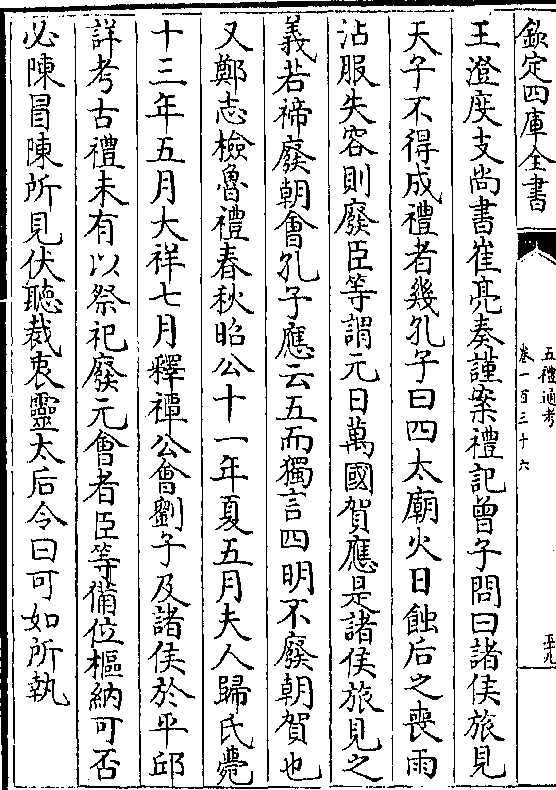 欽定四庫全書
五禮通考
卷一百三十六
王澄度支尚書崔亮奏謹案禮記曾子問曰諸侯旅見
天子不得成禮者幾孔子曰四太廟火日蝕后之喪雨
沾服失容則廢臣等謂元日萬國賀應是諸侯旅見之
義若禘廢朝會孔子應云五而獨言四明不廢朝賀也
又鄭志檢魯禮春秋昭公十一年夏五月夫人歸氏薨
十三年五月大祥七月釋禫公會劉子及諸侯於平邱
詳考古禮未有以祭祀廢元會者臣等備位樞納可否
必陳冒陳所見伏聽裁衷靈太后令曰可如所執